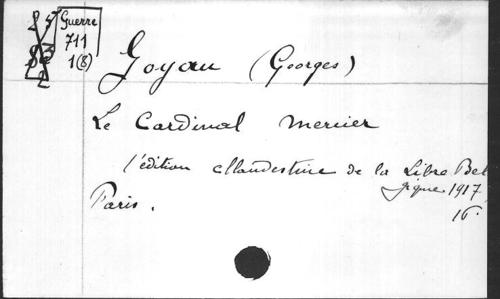 Guerre
711
1(8)
Goyau (Georges)
Le Cardinal Mercier
l'édition clandestine de la Libre Bel
gique 1917
Paris.
16°